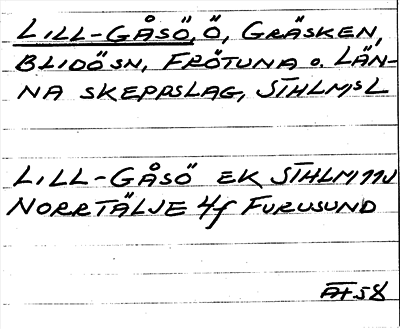 LILL-GÅSÖ, Ö, GRÄSKEN,
BLIDÖSN, FRÖTUNA o. LÄN-
NA SKEPPSLAG, STHLMSL
LILL-GÅSÖ EK STHLM 11J
NORRTÄLJE 4f FURUSUND
AT58